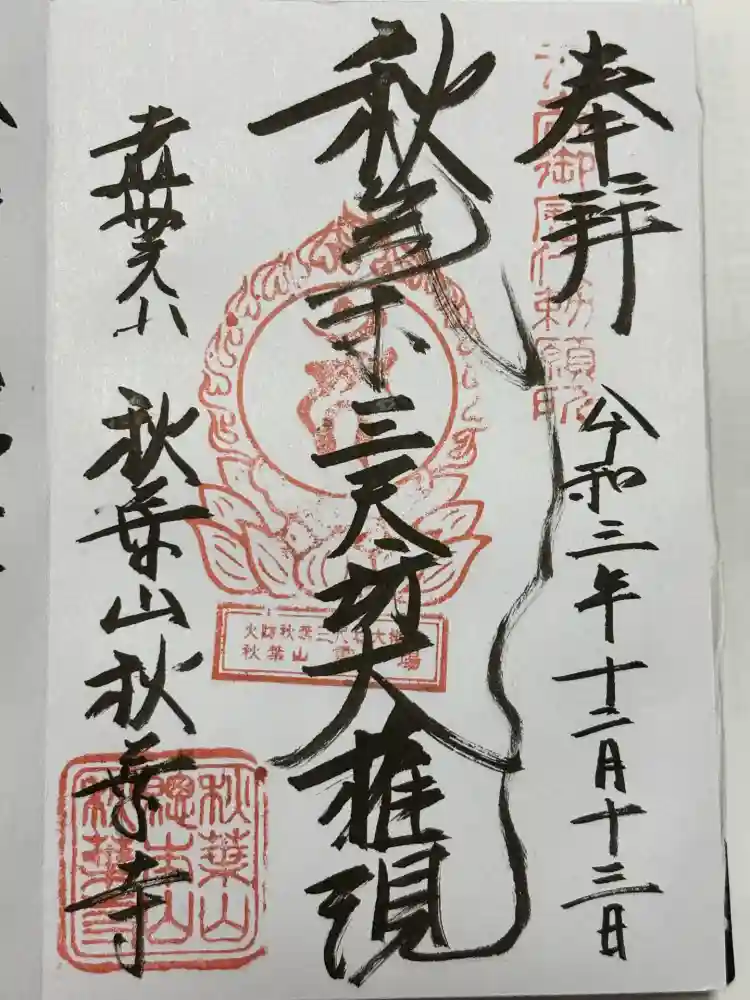 奉拝
令和三年十二月十三日
秋葉三尺坊大権現
秋葉山秋葉寺
火防秋葉三尺坊大権
秋葉山
場
秋葉山
總本山
秋葉寺
勅願所